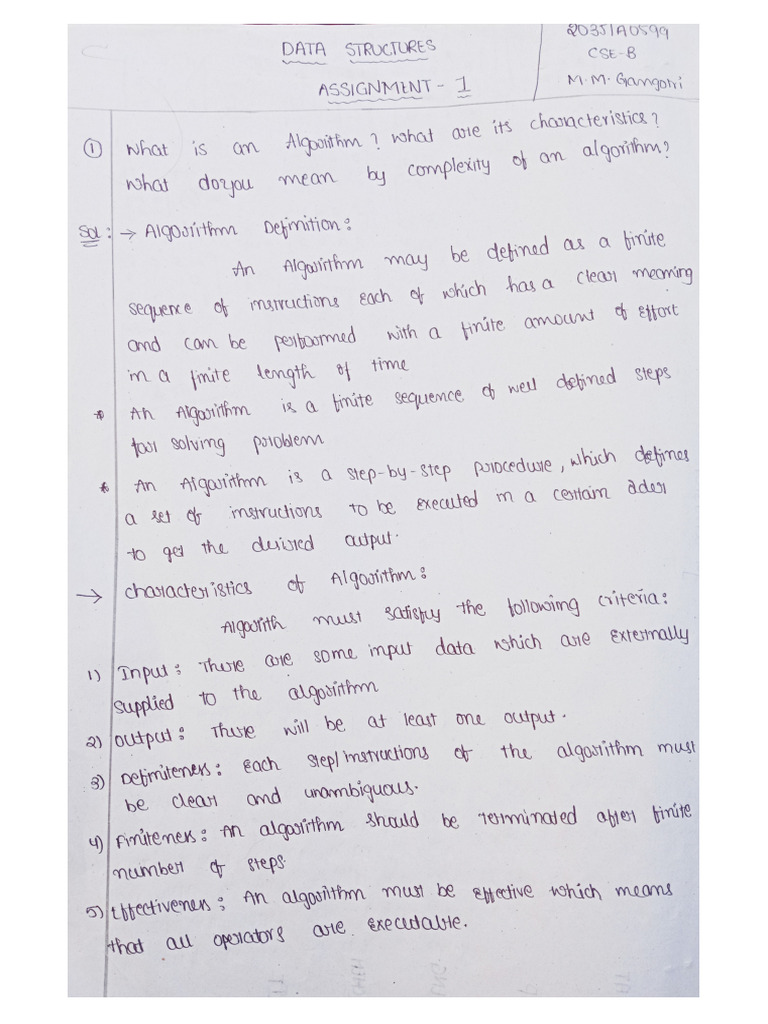 DATA STRUCTURES
ASSIGNMENT - 1
20351A0599
CSE-B
M.M. Gangotri
① What is an Algorithm? What are its characteristics?
What do you mean by complexity of an algorithm?
Sol: → Algorithm Definition:
An Algorithm may be defined as a finite
sequence of instructions each of which has a clear meaning
and can be performed with a finite amount of effort
in a finite length of time
* An Algorithm is a finite sequence of well defined steps
for solving problem
* An Algorithm is a step-by-step procedure, which defines
a set of instructions to be executed in a certain order
to get the desired output.
→ characteristics of Algorithm:
Algorith must satisfy the following criteria:
1) Input: There are some input data which are externally
supplied to the algorithm
2) output: There will be at least one output.
3) Definiteness: Each step/instructions of the algorithm must
be clear and unambiguous.
4) Finiteness: An algorithm should be terminated after finite
number of steps.
5) Effectiveness: An algorithm must be effective which means
that all operators are executable.